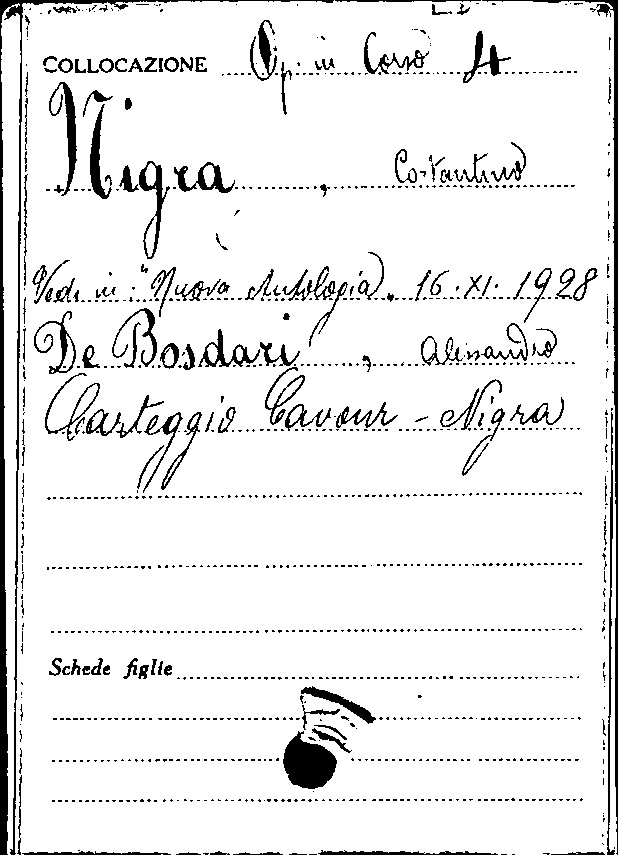 COLLOCAZIONE Op. in Corso 4
Nigra, Costantino
Vedi in: "Nuova Antologia" 16.XI.1928
De Bosdari, Alessandro
Carteggio Cavour - Nigra
Schede figlie